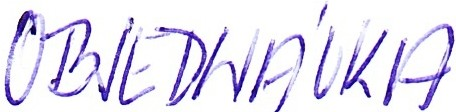 OBJEDNÁVKA